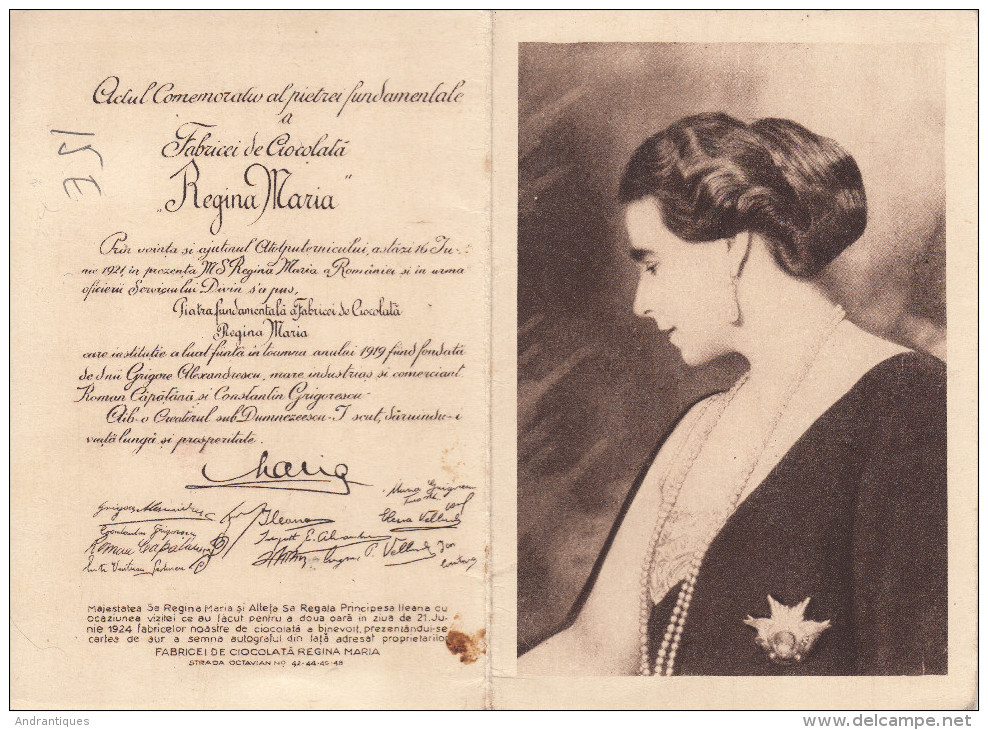 Actul Comemorativ al pietrei fundamentale
a
Fabricei de Ciocolată
„Regina Maria"
Prin voința și ajutorul Atotputernicului, astăzi 16 Iu-
nie 1921, în prezența M.S. Regina Maria a României și în urma
oficierii Serviciului Divin s'a pus,
Piatra fundamentală a Fabricei de Ciocolată
Regina Maria
care instituție a luat ființă în toamna anului 1919 fiind fondată
de dnii Grigore Alexandrescu, mare industriaș și comerciant
Roman Căpățână și Constantin Grigorescu-
Aib-o Creatorul sub Dumnezeescu-I scut, dăruindu-i
viață lungă și prosperitate.
Maria
Ileana
Majestatea Sa Regina Maria și Alteța Sa Regala Principesa Ileana cu
ocaziunea vizitei ce au făcut pentru a doua oară în ziua de 21. Ju-
nie 1924 fabricelor noastre de ciocolată a binevoit, prezentându-se
cartea de aur a semna autograful din față adresat proprietarilor
FABRICEI DE CIOCOLATĂ REGINA MARIA
STRADA OCTAVIAN No. 42-44-46-48
Andrantiques
www.delcampe.net